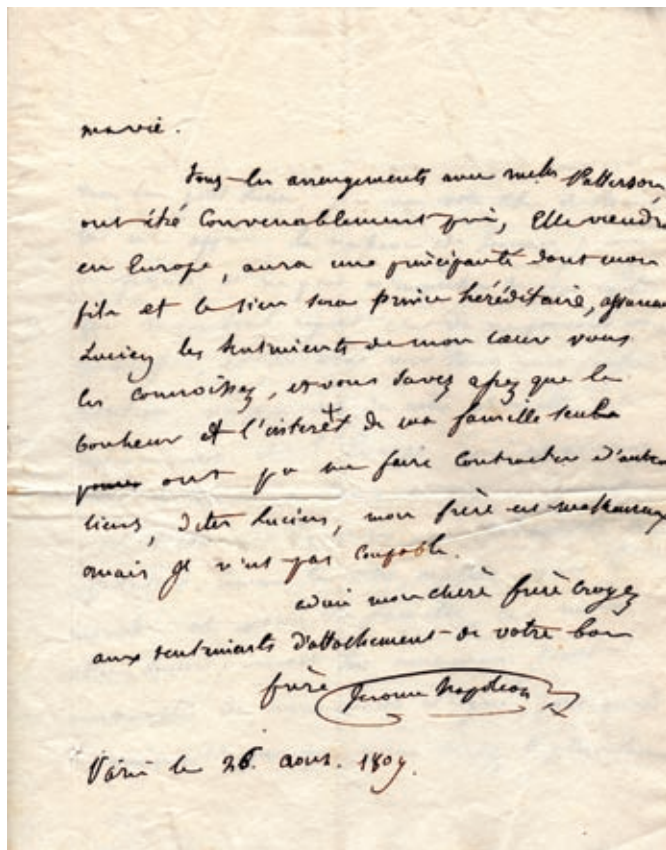 ma vie.
tous les arrangements avec Patterson
ont été Convenablement pris, Elle viendra
en Europe, aura une principauté dont mon
fils et le sien sera prince héréditaire,
Lucien les sentiments de mon cœur vous
les connoissez, et vous savez assez que le
bonheur et l'interet de ma famille seuls
ont pu me faire Contracter d'autres
liens, dites Lucien, mon frère est malheureux
mais il n'est pas coupable.
adieu mon cher frère croyez
aux sentiments d'attachement de votre bon
frère Jerome Napoleon
le 26. aout. 1809.